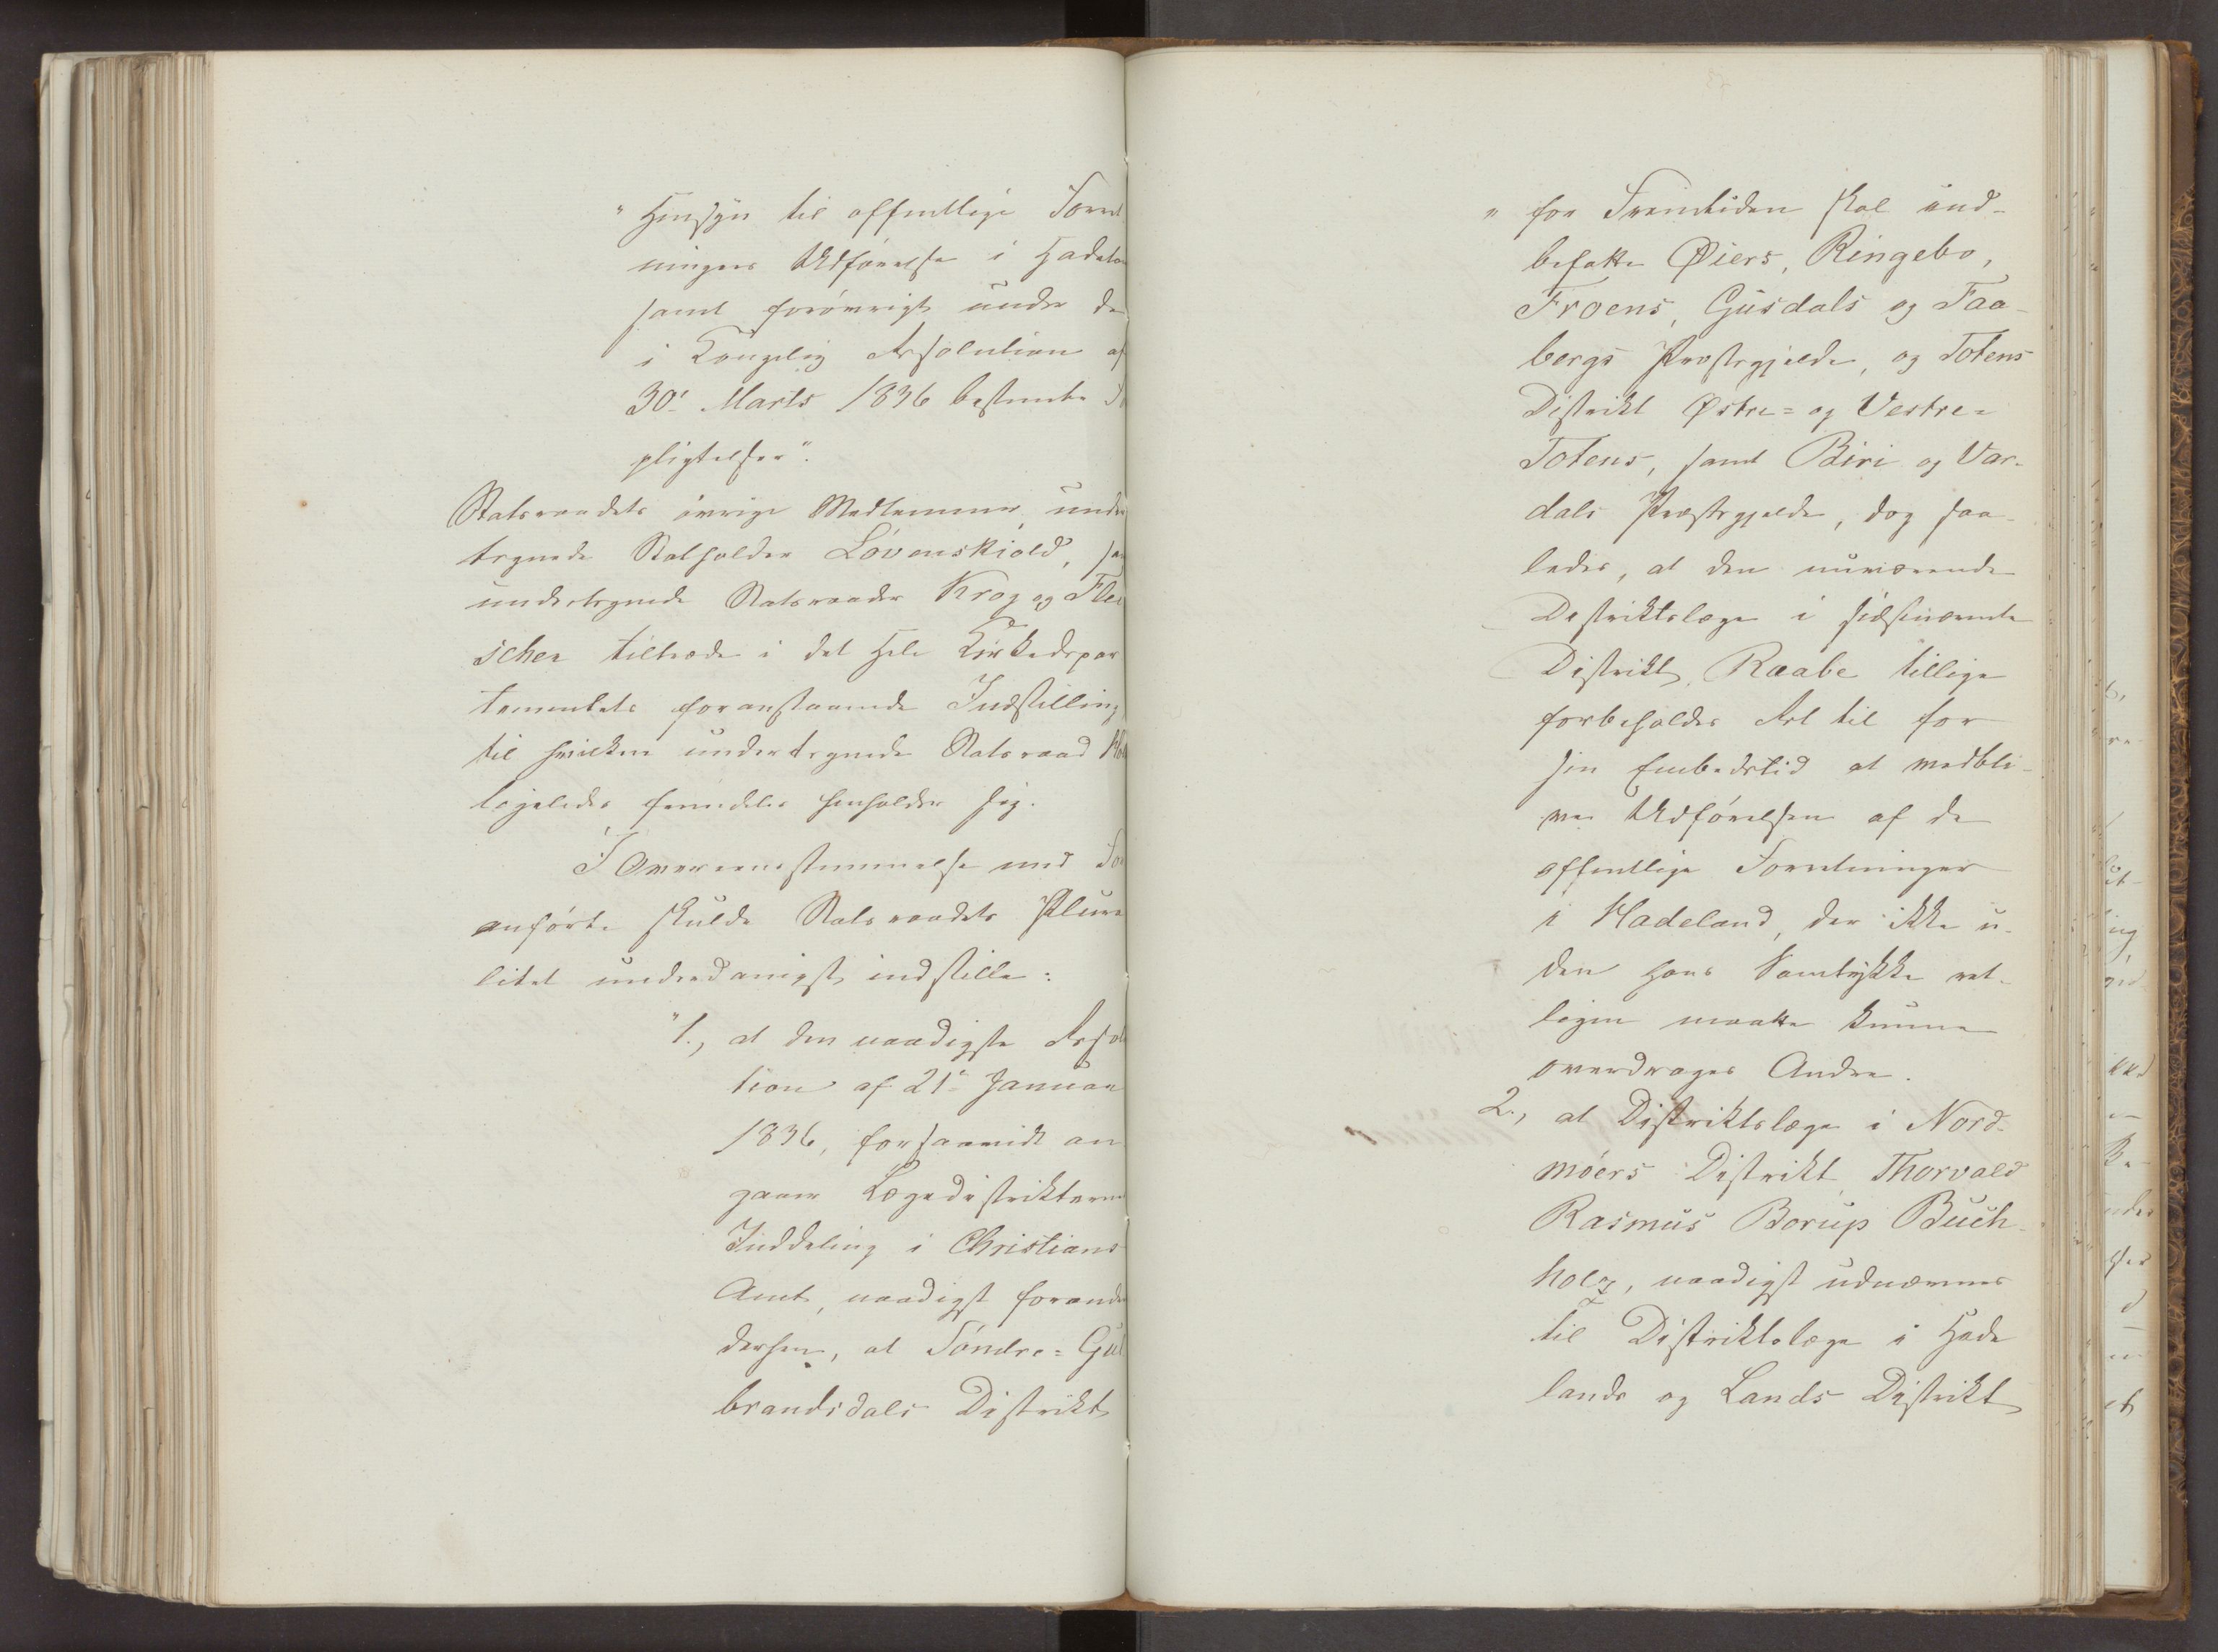 "Hensyn til offentlige Forret
ningers Udførelse i Hadelan
samt forøvrigt under de
i Kongelig Resolution af
30te Marts 1836 bestemte
pligtelser".
Statsraadets øvrige Medlemmer, under
tegnede Statholder Løvenskiold, sa
undertegnede Statsraader Krog og Flei
scher tiltræde i det Hele Kirkedepar
tementets foranstaaende Indstilling
til hvilken undertegnede Statsraad
ligeledes fremdeles henholder sig.
I Overeensstemmelse med
anførte skulde Statsraadets Plura
litet underdanigst indstille:
"1., at den naadigste Resol
tion af 21de Januar
1836, forsaavidt an
gaaer Lægedistrikternes
Inddeling i Christians
Amt, naadigst foran
derhen, at Søndre=Gul
brandsdals Distrikt
" for Fremtiden skal ind-
befatte Øiers, Ringebo,
Froens, Gusdals og Faa-
bergs Præstegjelde, og Totens
Distrikt Østre= og Vestre=
Totens, samt Biri og Var-
dals Præstegjelde, dog saa-
ledes, at den nuværende
Distriktslæge i sidstnævnte
Distrikt, Raabe tillige
forbeholdes Ret til for
sin Embedstid at vedbli-
ve Udførelsen af de
offentlige Forretninger
i Hadeland, der ikke u-
den hans Samtykke vet-
ligen maatte kunne
overdrages Andre.
2., at Distriktslæge i Nord-
møers Distrikt, Thorvald
Rasmus Borup Buch-
holz, naadigst udnævnes
til Distriktslæge i Hade
lands og Lands Distrikt